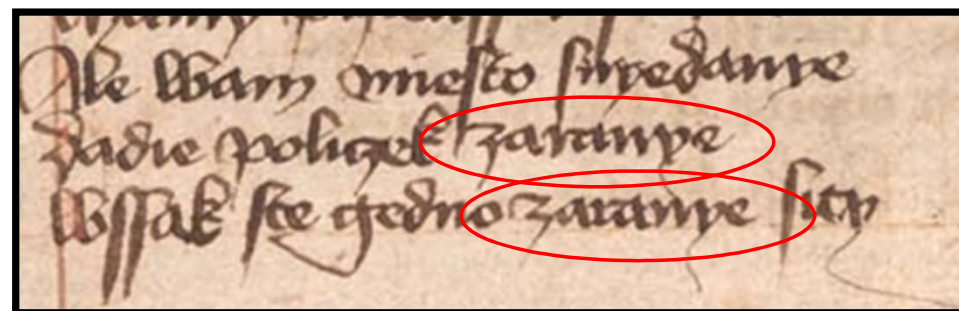 Ale wam miesto snyedanye
dadie policzek zaranye
wssak ste gedno zaranye siti